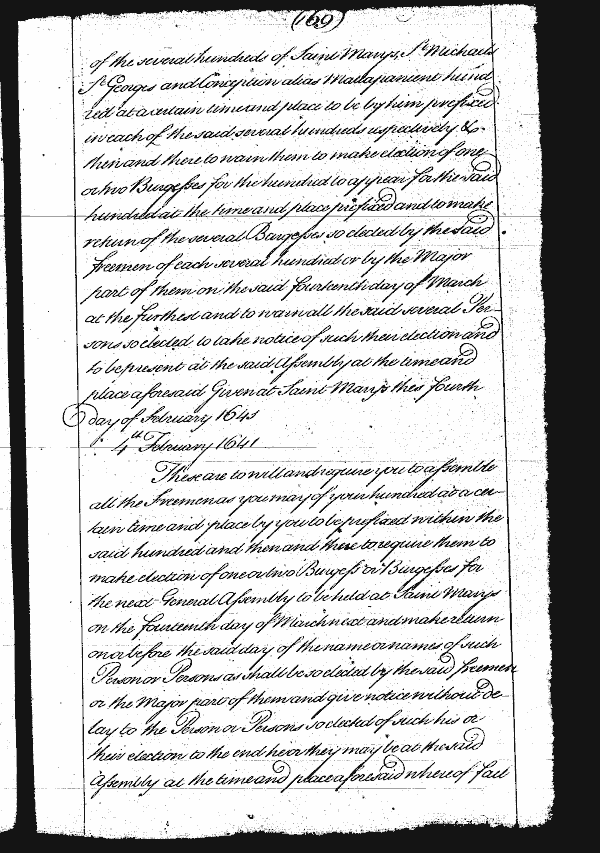 (169)
of the several hundreds of Saint Marys, St Michaels
St Georges and Conception alias Mattapanient hund
red at a certain time and place to be by him prefixed
in each of the said several hundreds respectively &
then and there to warn them to make election of one
or two Burgesses for the hundred to appear for the said
hundred at the time and place prefixed and to make
return of the several Burgesses so elected by the said
freemen of each several hundred or by the Major
part of them on the said fourteenth day of March
at the furthest and to warn all the said several Per-
sons so elected to take notice of such their election and
to be present at the said Assembly at the time and
place aforesaid Given at Saint Marys this fourth
day of February 1641
4th February 1641
These are to will and require you to assemble
all the Freemen as you may of your hundred at a cer-
tain time and place by you to be prefixed within the
said hundred and then and there to require them to
make election of one or two Burgess or Burgesses for
the next General Assembly to be held at Saint Marys
on the fourteenth day of March next and make return
on or before the said day of the name or names of such
Person or Persons as shall be so elected by the said freemen
or the Major part of them and give notice without de-
lay to the Person or Persons so elected of such his or
their election to the end he or they may be at the said
Assembly at the time and place aforesaid whereof fail